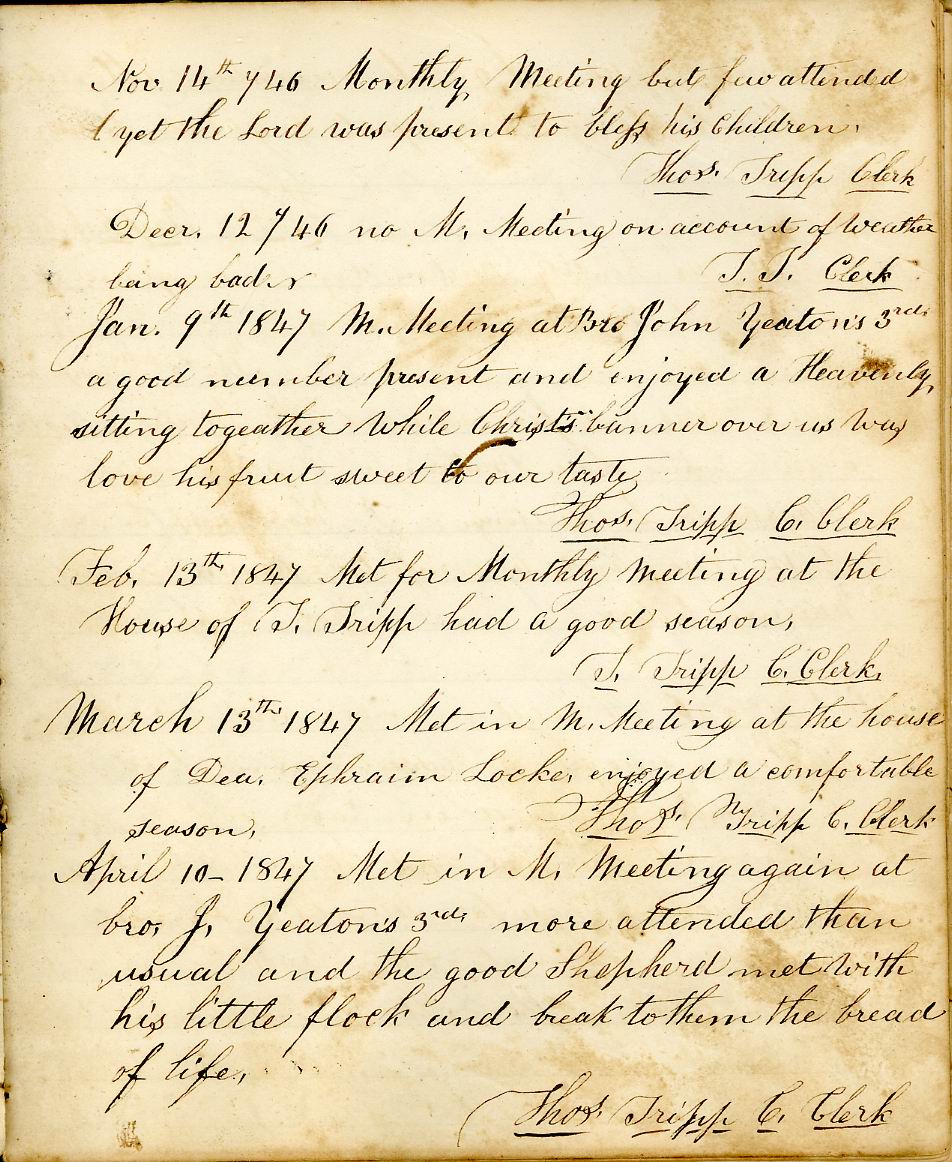 Nov 14th /46 Monthly Meeting but few attended
yet the Lord was present to bless his Children.
Thos. Tripp Clerk
Decr. 12 /46 no M. Meeting on account of Weather
being bad.
T. T. Clerk
Jan. 9th 1847 M. Meeting at Bro John Yeaton's 3rd.
a good number present and enjoyed a Heavenly
sitting togeather While Christ's banner over us was
love his fruit sweet to our taste
Thos. Tripp C. Clerk
Feb. 13th 1847 Met for Monthly Meeting at the
House of T. Tripp had a good season.
T. Tripp C. Clerk.
March 13th 1847 Met in M. Meeting at the house
of Dea. Ephraim Locke. enjoyed a comfortable
season. Thos. Tripp C. Clerk
April 10 – 1847 Met in M. Meeting again at
bro. J. Yeaton's 3rd. more attended than
usual and the good Shepherd met with
his little flock and break to them the bread
of life.
Thos. Tripp C. Clerk